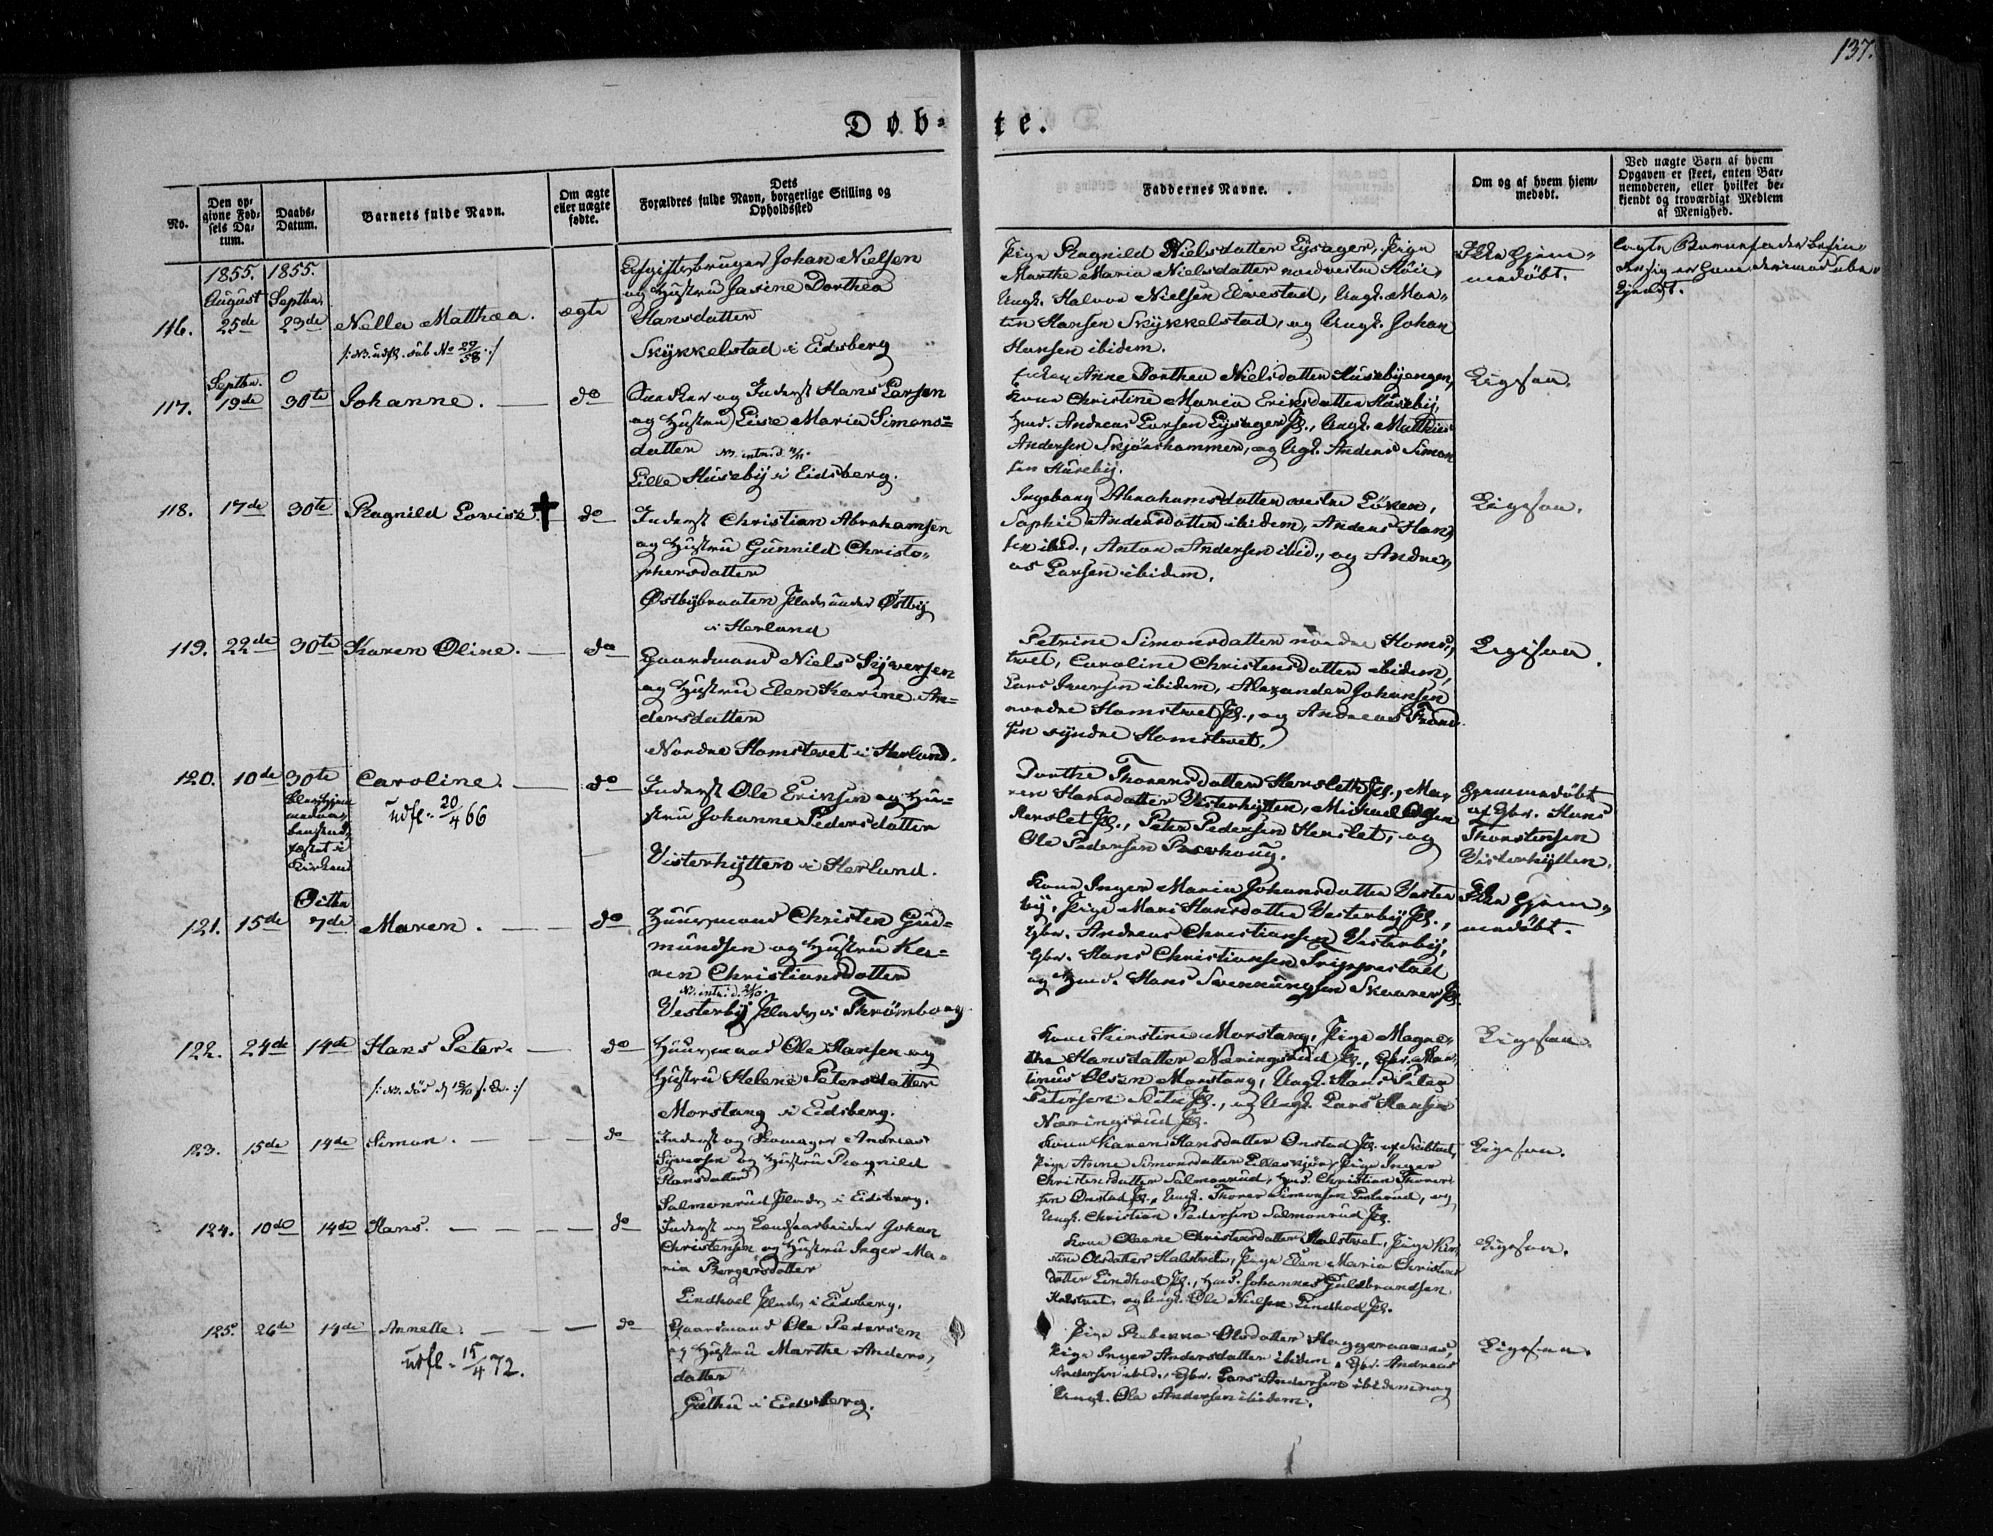 137.
Døb-
te.
No.
Den op-
givne Fød-
sels Da-
tum.
Daabs-
Datum.
Barnets fulde Navn.
Om ægte
eller uægte
fødte.
Dets
Forældres fulde Navn, borgerlige Stilling og
Opholdssted
Faddernes Navne.
Om og af hvem hjem-
medøbt.
Ved uægte Børn af hvem
Opgaven er skeet, enten Bar-
nemoderen, eller hvilket be-
kjendt og troværdigt Medlem
af Menighed.
1855. 1855.
August Septbr.
116. 25de 23de Nella Matthæa. ægte
/: NB. udfl. sub No 29/58 :/
Johan Nielsen
og Hustru Jasine Dorthea
Hansdatter
Skÿkkelstad i Eidsberg
Pige Ragnild Nielsdatter Eysager, Pige
Marthe Maria Nielsdatter nordvestre Hüie
Ungk. Halvor Nielsen Elvestad, Ungk. Mar-
tin Hansen Skÿkkelstad, og Ungk. Johan
Hansen ibidem.
Ikke hjem-
medøbt.
Septbr.
117. 19de 30te Johanne. do
og Inderst Hans Larsen
og Hustru Lise Maria Simons-
datter
Lille Hüsebÿ i Eidsberg.
Anne Dorthea Nielsdatter Hüsebyengen,
Kone Christine Maria Eriksdatter Hüsebÿ,
Hmd. Andreas Larsen Eysager Pl., Ungk. Mathias
Andersen Skjøreshammer, og Ugk. Anders Simon
sen Hüsebÿ.
Ligesaa.
118. 17de 30te Ragnild Lovise do
Inderst Christian Abrahamsen
og Hustru Günnild Christo-
phersdatter
Østbÿbraaten Plads under Østbÿ
i Herland
Ingeborg Abrahamsdatter vestre Løken,
Sophie Andersdatter ibidem, Anders Han-
sen ibid., Anton Andersen ibid., og Andre-
as Larsen ibidem.
Ligesaa.
119. 22de 30te Karen Oline. do
Gaardmand Niels Sÿversen
og Hustru Elen Karine An-
dersdatter
Nordre Homstvet i Herland.
Petrine Simonsdatter nordre Homs-
tvet, Caroline Christensdatter ibidem,
Lars Iversen ibidem, Alexander Johansen
nordre Homstvet Pl., og Andreas Trond
sen søndre Homstvet.
Ligesaa.
120. 10de 30te Caroline. do
udfl. 20/4 66
Kirken
Inderst Ole Eriksen og Hu-
stru Johanne Pedersdatter
Vesterhÿtten i Herland.
Dorthe Thoresdatter Herslet Pl., Ma-
ren Hansdatter Vesterhÿtten, Michael Olsen
Herslet Pl., Peter Pedersen Herslet, og
Ole Pedersen
Hjemmedøbt
af Gbr. Hans
Thorstensen
Vesterhÿtten.
Octbr
121. 15de 7de Maren. do
Huusmand Christen Gud-
mundsen og Hustru Ka-
ren Christiansdatter
Vesterbÿ Plads i Thrømborg
Kone Inger Maria Johansdatter Vester
bÿ, Pige Mari Hansdatter Vesterbÿ Pl.,
Gbr. Andreas Christiansen Vesterbÿ,
Gbr. Hans Christiansen Trippestad
og Hmd. Hans Svenküngsen Skaarer Pl
Ikke hjem-
medøbt.
122. 24de 14de Hans Peter. do
Huusmand Ole Hansen og
Hustru Helene Petersdatter
Morstang i Eidsberg.
Kone Kirstine Morstang, Pige Magne-
the Hansdatter Næringsrüd Pl., Gbr. Mar-
tinus Olsen Morstang, Ungk. Hans Peter
Petersen Pl., og Ungk. Lars Hansen
Næringsrud Pl.
Ligesaa.
123. 15de 14de Simon. do
Inderst og Skomager Andreas
Sÿversen og Hustru Ragnild
Hansdatter
Salmonrud Plads i Eidsberg.
Kone Karen Hansdatter Onstad Pl.
Pige Anne Simonsdatter Pige Inger
Christensdatter Salmonrud, Hmd. Christian Thorer-
sen Onstad Pl., Ungk. Thorer Simonsen og
Ungk. Christian Pedersen Salmonrud Pl.
Ligesaa.
124. 10de 14de Hans. do
Inderst og Landsarbeider Johan
Christensen og Hustru Inger Ma-
ria Børgersdatter
Lindhoel Plads i Eidsberg.
Kone Oleane Christensdatter Halstvet, Pige Kir-
stine Olsdatter Halstvet, Pige Elen Maria Christens
datter Lindhoel Pl., Hmd. Johannes Guldbrandsen
Halstvet, og Ungk. Ole Nielsen Lindhoel Pl.
Ligesaa.
125. 26de 14de Annette. do
udfl. 15/4 72.
Gaardmand Ole Pedersen
og Hustru Marthe Anders,
datter
Güthu i Eidsberg.
Pige Rebenna Olsdatter
Pige Inger Andersdatter ibidem, Gbr. Andreas
Andersen ibid., Gbr. Lars Andersen ibidem og
Ungk. Ole Andersen ibidem.
Ligesaa.